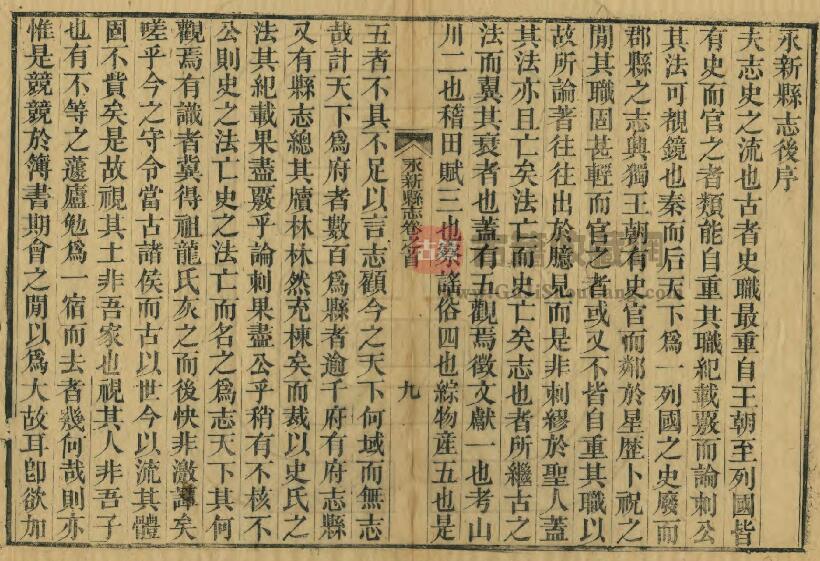 永新縣志後序
夫志史之流也古者史職最重自王朝至列國皆
有史而官之者類能自重其職紀載覈而論刺公
其法可覩鏡也秦而后天下為一列國之史廢而
郡縣之志興獨王朝有史官而鄰於星歷卜祝之
閒其職固甚輕而官之者或又不皆自重其職以
故所論著往往出於臆見而是非刺繆於聖人蓋
其法亦且亡矣法亡而史亡矣志也者所繼古之
法而翼其衰者也蓋有五觀焉徵文獻一也考山
川二也稽田賦三也察謠俗四也綜物產五也是
永新縣志卷之首
九
五者不具不足以言志顧今之天下何域而無志
哉計天下為府者數百為縣者逾千府有府志縣
又有縣志總其牘林林然充棟矣而裁以史氏之
法其紀載果盡覈乎論刺果盡公乎稍有不核不
公則史之法亡史之法亡而名之為志天下其何
觀焉有識者冀得祖龍氏灰之而後快非激譚矣
嗟乎今之守令當古諸侯而古以世今以流其體
固不貴矣是故視其土非吾家也視其人非吾子
也有不等之蘧廬勉為一宿而去者幾何哉則亦
惟是競競於簿書期會之閒以為大故耳卽欲加